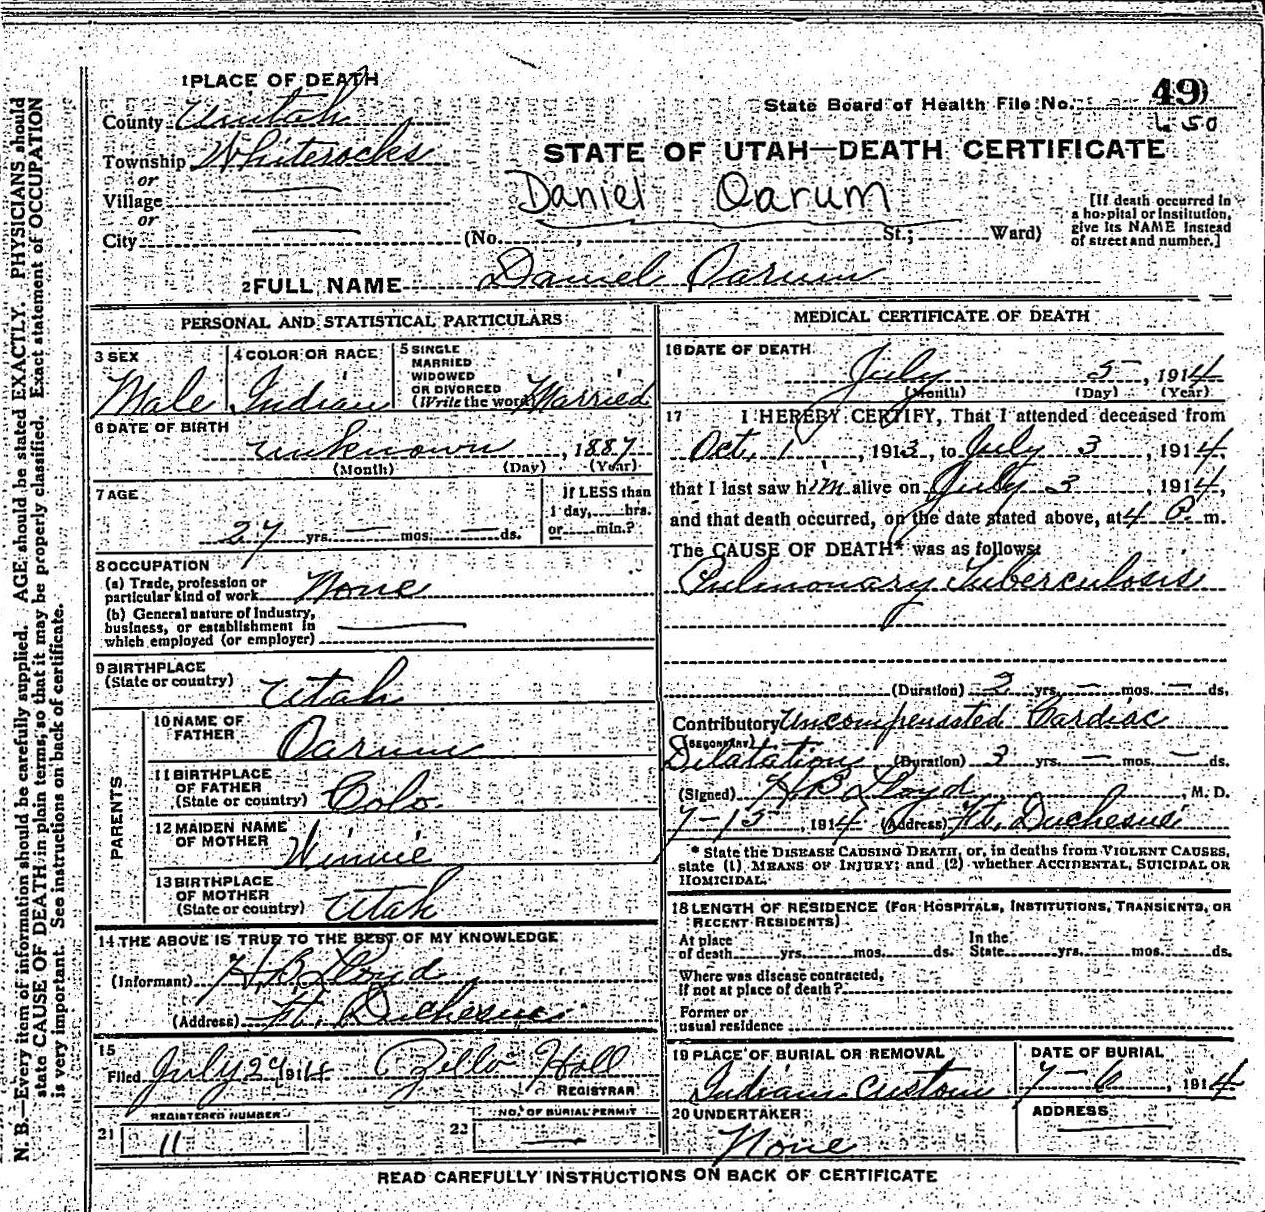 1 PLACE OF DEATH
County Uintah
Township Whiterocks
or
Village
or
City
(No. , St.; Ward)
State Board of Health File No. 49
650
STATE OF UTAH—DEATH CERTIFICATE
Daniel Oarum
[If death occurred in
a hospital or institution,
give its NAME instead
of street and number.]
2 FULL NAME Daniel Oarum
PERSONAL AND STATISTICAL PARTICULARS
3 SEX
Male
4 COLOR OR RACE
Indian
5 SINGLE
MARRIED
WIDOWED
OR DIVORCED
(Write the word) Married
6 DATE OF BIRTH
unknown , 1887
(Month) (Day) (Year)
7 AGE
27 yrs. — mos. — ds.
If LESS than
1 day, hrs.
or min.?
8 OCCUPATION
(a) Trade, profession or
particular kind of work None
(b) General nature of Industry,
business, or establishment in
which employed (or employer)
9 BIRTHPLACE
(State or country) Utah
PARENTS
10 NAME OF
FATHER Oarum
11 BIRTHPLACE
OF FATHER
(State or country) Colo.
12 MAIDEN NAME
OF MOTHER Winnie
13 BIRTHPLACE
OF MOTHER
(State or country) Utah
14 THE ABOVE IS TRUE TO THE BEST OF MY KNOWLEDGE
(Informant) H.B. Lloyd
(Address) Ft. Duchesne
15
Filed July 29 1914 Zella Hall
REGISTRAR
REGISTERED NUMBER
21 11
NO. OF BURIAL PERMIT
22 —
MEDICAL CERTIFICATE OF DEATH
16 DATE OF DEATH
July 5 , 1914
(Month) (Day) (Year)
17 I HEREBY CERTIFY, That I attended deceased from
Oct. 1 , 1913, to July 3 , 1914.
that I last saw him alive on July 3 , 1914,
and that death occurred, on the date stated above, at 4 P. m.
The CAUSE OF DEATH* was as follows:
Pulmonary Tuberculosis
(Duration) 3 yrs. — mos. — ds.
Contributory Uncompensated Cardiac
(SECONDARY)
Dilatation (Duration) 3 yrs. — mos. — ds.
(Signed) H B Lloyd , M. D.
7-15 , 1914 (Address) Ft. Duchesne
* State the DISEASE CAUSING DEATH, or, in deaths from VIOLENT CAUSES,
state (1) MEANS OF INJURY; and (2) whether ACCIDENTAL, SUICIDAL OR
HOMICIDAL.
18 LENGTH OF RESIDENCE (FOR HOSPITALS, INSTITUTIONS, TRANSIENTS, OR
RECENT RESIDENTS)
At place
of death yrs. mos. ds.
In the
State yrs. mos. ds.
Where was disease contracted,
if not at place of death?
Former or
usual residence
19 PLACE OF BURIAL OR REMOVAL
Indian custom
DATE OF BURIAL
7-6 , 1914
20 UNDERTAKER
None
ADDRESS
READ CAREFULLY INSTRUCTIONS ON BACK OF CERTIFICATE
N. B.—Every item of information should be carefully supplied. AGE should be stated EXACTLY. PHYSICIANS should
state CAUSE OF DEATH in plain terms, so that it may be properly classified. Exact statement of OCCUPATION
is very important. See instructions on back of certificate.